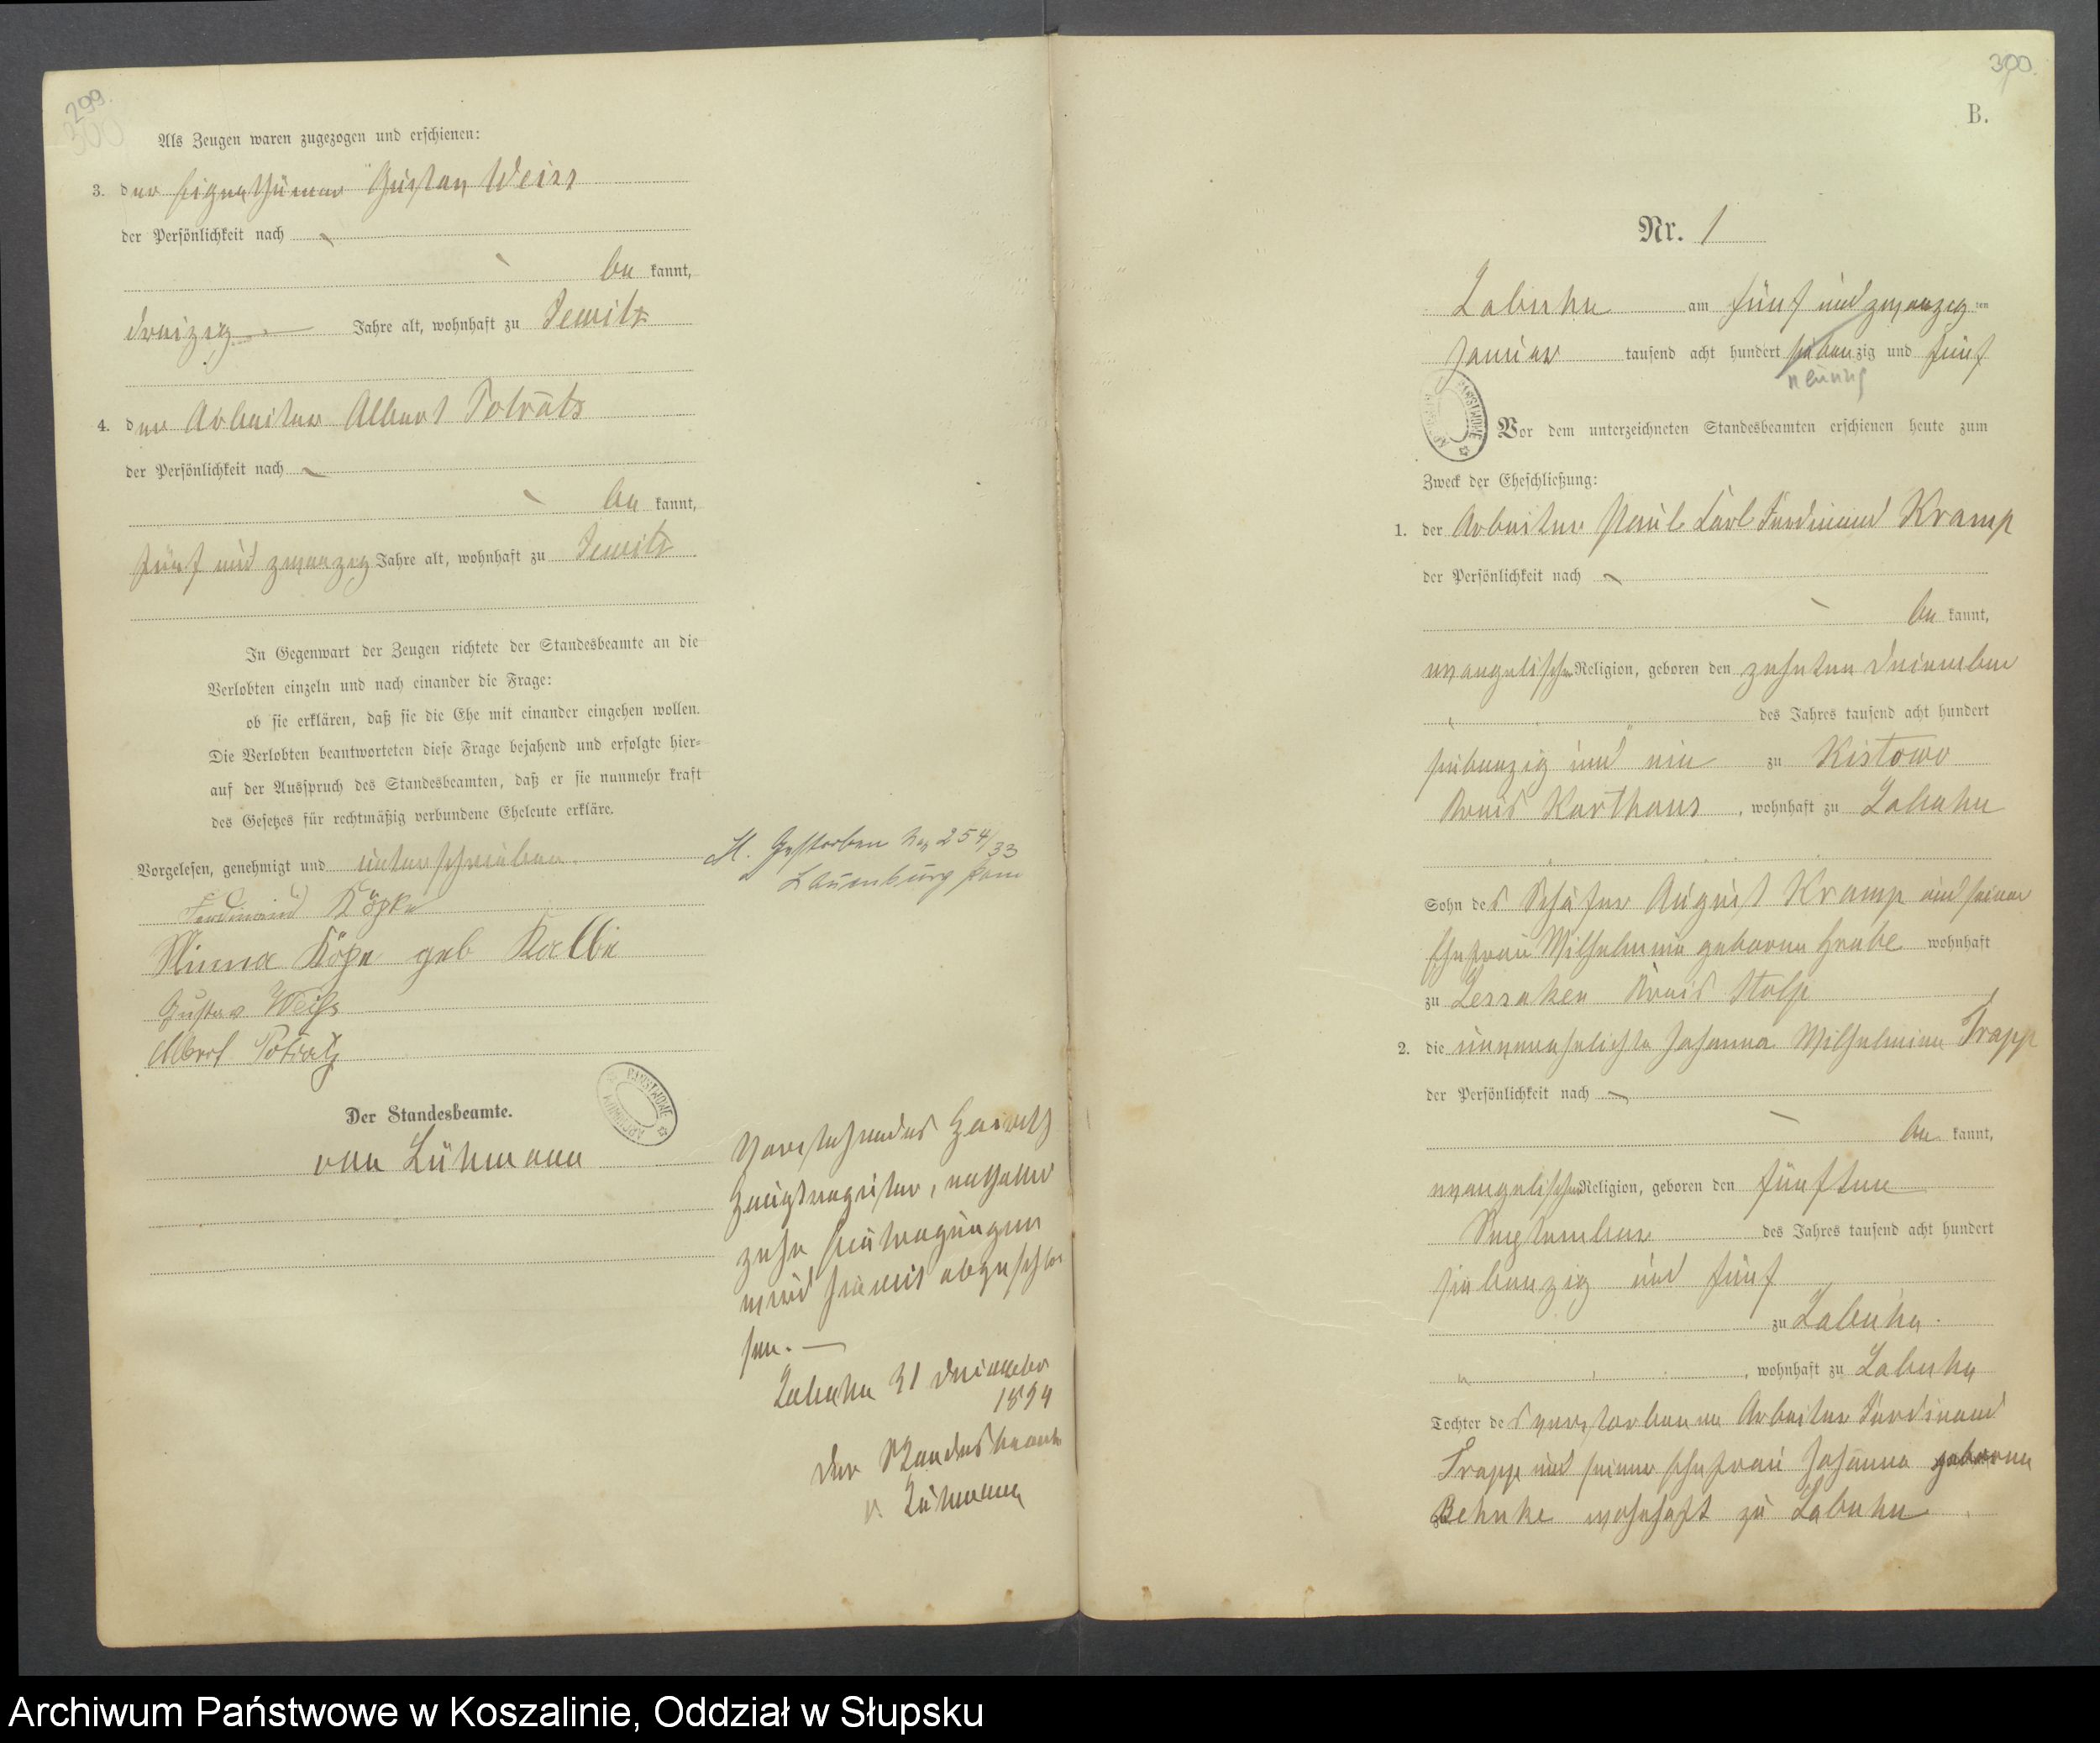 299.
300
Als Zeugen waren zugezogen und erschienen:
3. der Eigenthümer Gustav Weiss
der Persönlichkeit nach
be kannt,
dreizig Jahre alt, wohnhaft zu Jewitz
4. der Arbeiter Albert Poträtz
der Persönlichkeit nach
be kannt,
fünf und zwanzig Jahre alt, wohnhaft zu Jewitz
In Gegenwart der Zeugen richtete der Standesbeamte an die
Verlobten einzeln und nach einander die Frage:
ob sie erklären, daß sie die Ehe mit einander eingehen wollen.
Die Verlobten beantworteten diese Frage bejahend und erfolgte hier-
auf der Ausspruch des Standesbeamten, daß er sie nunmehr kraft
des Gesetzes für rechtmäßig verbundene Eheleute erkläre.
Vorgelesen, genehmigt und unterschrieben.
Ferdinand Köpke
Minna Köpe geb Kolbe
Gustav Weiß
Albert Poträtz
Der Standesbeamte.
von Lühmann
M. Gestorben Reg 254/33
Lauenburg Pom
Vorstehendes Heirats
Hauptregister, enthaltend
zehn Eintragungen
wird hiermit abgeschlos
sen.
Labuhn 31 Dezember
1894
Der Standesbeamte
v. Lühmann
300
B.
Nr. 1
Labuhn am fünf und zwanzig ten
Januar tausend acht hundert siebenzig und fünf
neunzig
Vor dem unterzeichneten Standesbeamten erschienen heute zum
Zweck der Eheschließung:
1. der Arbeiter Paul Carl Ferdinand Kramp
der Persönlichkeit nach
be kannt,
evangelischer Religion, geboren den zehnten Dezember
des Jahres tausend acht hundert
siebenzig und ein zu Kistowo
Kreis Karthaus, wohnhaft zu Labuhn
Sohn des Schäfer August Kramp und seiner
Ehefrau Wilhelmine geborene Grabe wohnhaft
zu Lessaken Kreis Stolp
2. die unverehelichte Johanna Wilhelmine Trapp
der Persönlichkeit nach
be kannt,
evangelischer Religion, geboren den fünften
September des Jahres tausend acht hundert
siebenzig und fünf
zu Labuhn.
, wohnhaft zu Labuhn
Tochter des verstorbenen Arbeiter Ferdinand
Trapp und seiner Ehefrau Johanna geborene
Behnke wohnhaft zu Labuhn
Archiwum Państwowe w Koszalinie, Oddział w Słupsku